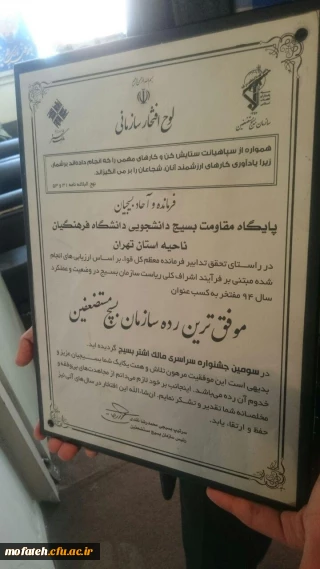 لوح افتخار سازمانی
سازمان بسیج مستضعفین
همواره از سپاهیانت ستایش کن و کارهای مهمی را که انجام داده‌اند برشمار،
زیرا یادآوری کارهای ارزشمند آنان، شجاعان را بر می انگیزاند.
نهج البلاغه نامه ۵۳
فرمانده و آحاد بسیجیان
پایگاه مقاومت بسیج دانشجویی دانشگاه فرهنگیان
ناحیه استان تهران
در راستای تحقق تدابیر فرمانده معظم کل قوا، بر اساس ارزیابی های انجام
شده مبتنی بر فرآیند اشراف کلی ریاست سازمان بسیج در وضعیت و عملکرد
سال ۹۴ مفتخر به کسب عنوان
موفق ترین رده سازمان بسیج مستضعفین
در سومین جشنواره سراسری مالک اشتر بسیج گردیده اید.
بدیهی است این موفقیت مرهون تلاش و همت یکایک شما بسیجیان عزیز و
خدوم آن رده می‌باشد. اینجانب بر خود لازم می‌دانم از مجاهدت‌های بی‌وقفه و
مخلصانه شما تقدیر و تشکر نمایم. ان‌شاءالله این افتخار در سال‌های آتی نیز
حفظ و ارتقاء یابد.
سرتیپ بسیجی محمدرضا نقدی
رئیس سازمان بسیج مستضعفین
mofateh.cfu.ac.ir